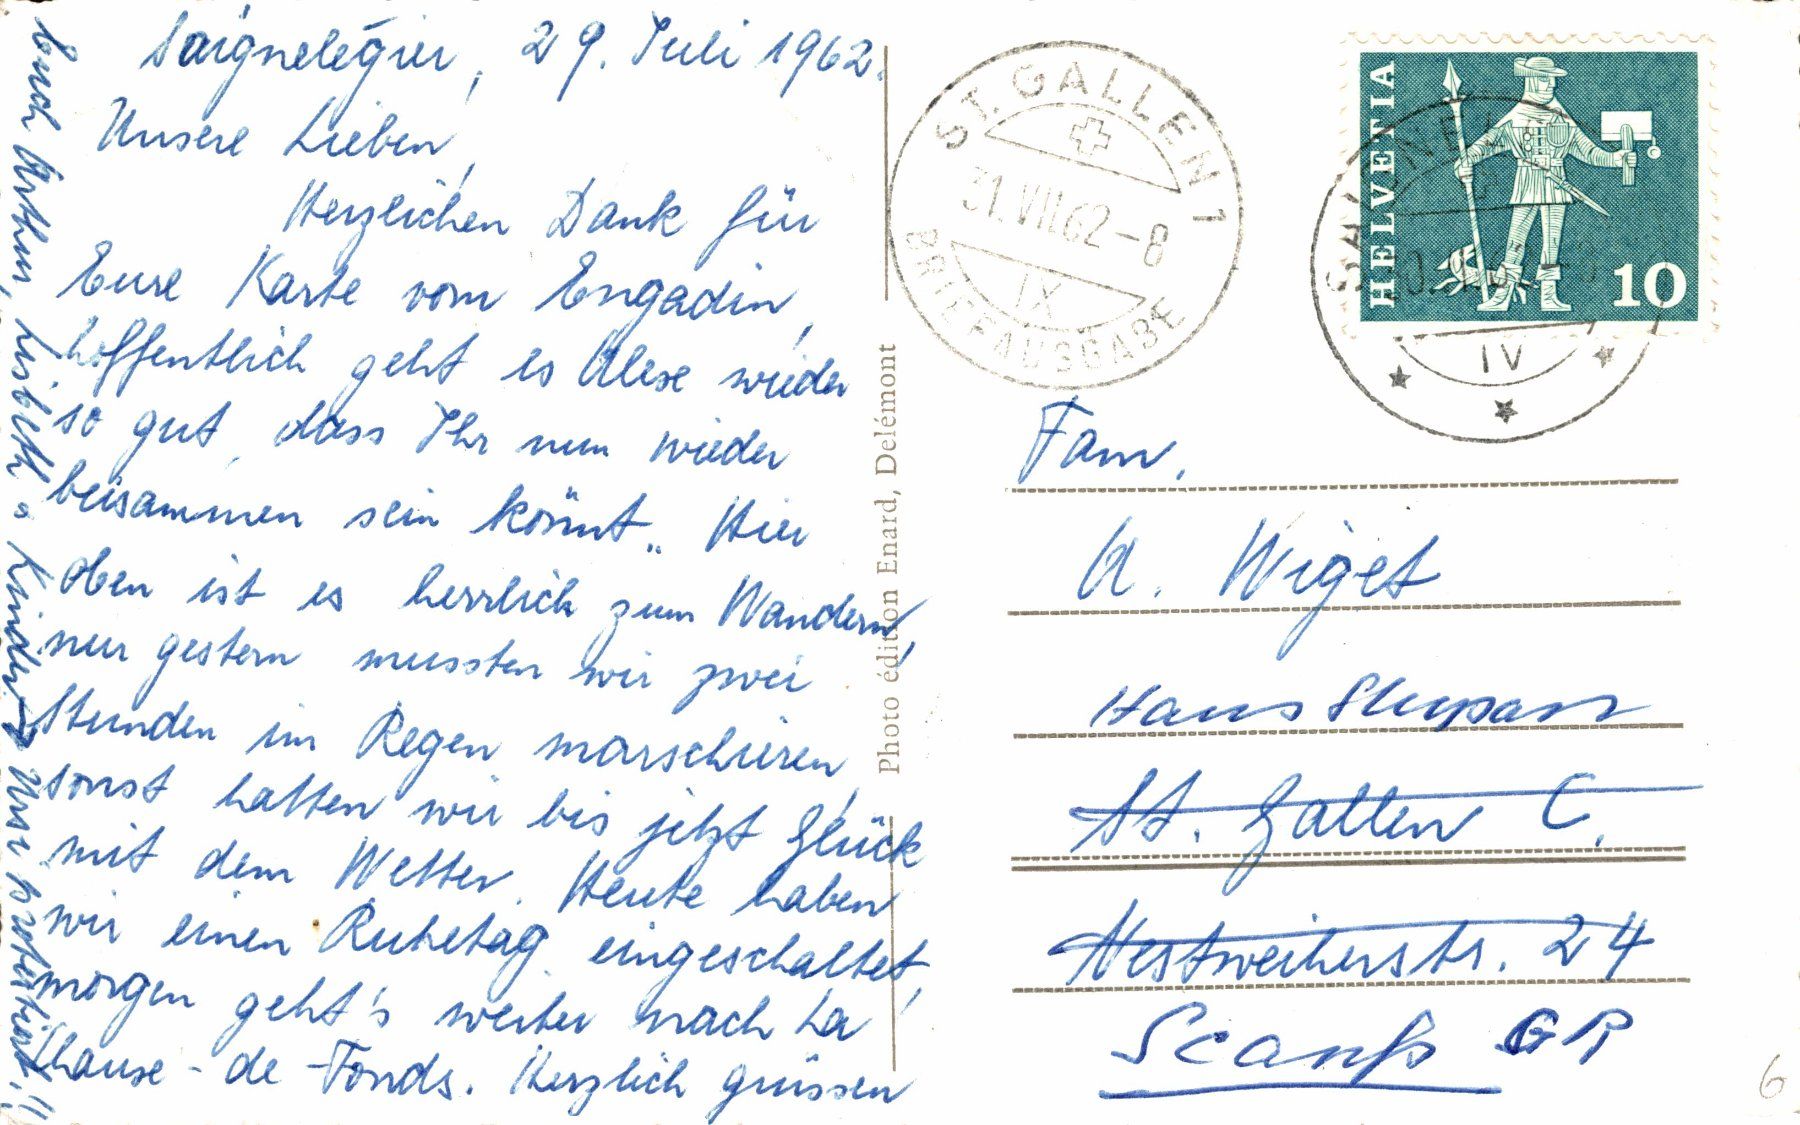 Saignelégier, 29. Juli 1962.
Unsere Lieben,
Herzlichen Dank für
Eure Karte vom Engadin,
hoffentlich geht es Alese wieder
so gut, dass Ihr nun wieder
beisammen sein könnt. Hier
oben ist es herrlich zum Wandern,
nur gestern mussten wir zwei
Stunden im Regen marschieren,
sonst hatten wir bis jetzt Glück
mit dem Wetter. Heute haben
wir einen Ruhetag eingeschaltet,
morgen geht's weiter nach La
Chaux-de-Fonds. Herzlich grüssen
Euch Arthur, Lisbeth u. Kinder
Photo édition Enard, Delémont
ST. GALLEN 1
31.VII.62-8
IX
BRIEFAUSGABE
HELVETIA
10
IV
Fam.
A. Wiget
Hans Stupan
St. Gallen C.
Nestweiherstr. 24
Scanfs GR
6